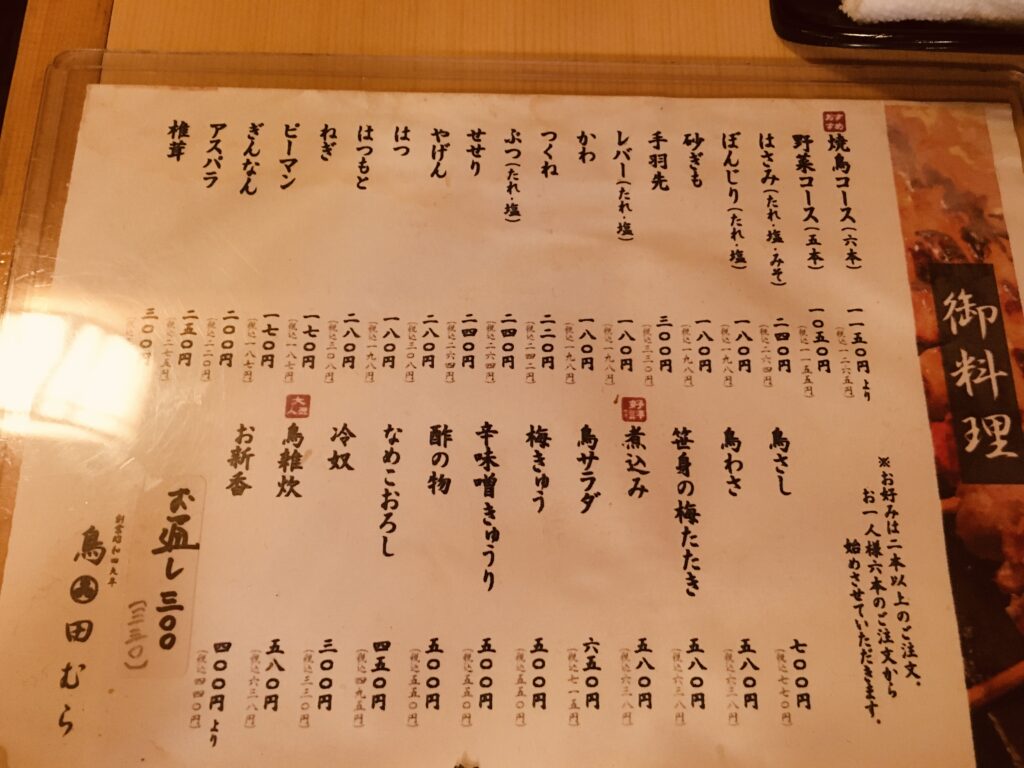 御料理
※お好みは二本以上のご注文。
お一人様六本のご注文から
始めさせていただきます。
おすすめ
焼鳥コース(六本) 一一五〇円より
(税込一二六五円)
野菜コース(五本) 一〇五〇円
(税込一一五五円)
はさみ(たれ・塩・みそ) 二四〇円
(税込二六四円)
ぼんじり(たれ・塩) 一八〇円
(税込一九八円)
砂ぎも 一八〇円
(税込一九八円)
手羽先 三〇〇円
(税込三三〇円)
レバー(たれ・塩) 一八〇円
(税込一九八円)
かわ 一八〇円
(税込一九八円)
つくね 二二〇円
(税込二四二円)
ぶつ(たれ・塩) 二四〇円
(税込二六四円)
せせり 二四〇円
(税込二六四円)
やげん 二八〇円
(税込三〇八円)
はつ 一八〇円
(税込一九八円)
はつもと 二八〇円
(税込三〇八円)
ねぎ 一七〇円
(税込一八七円)
ピーマン 一七〇円
(税込一八七円)
ぎんなん 二〇〇円
(税込二二〇円)
アスパラ 二五〇円
(税込二七五円)
椎茸 三〇〇円
鳥さし 七〇〇円
(税込七七〇円)
鳥わさ 五八〇円
(税込六三八円)
笹身の梅たたき 五八〇円
(税込六三八円)
煮込み 五八〇円
(税込六三八円)
鳥サラダ 六五〇円
(税込七一五円)
梅きゅう 五〇〇円
(税込五五〇円)
辛味噌きゅうり 五〇〇円
(税込五五〇円)
酢の物 五〇〇円
(税込五五〇円)
なめこおろし 四五〇円
(税込四九五円)
冷奴 三〇〇円
(税込三三〇円)
大人気
鳥雑炊 五八〇円
(税込六三八円)
お新香 四〇〇円より
(税込四四〇円)
お通し 三〇〇
(三三〇)
創業昭和四九年
鳥田むら